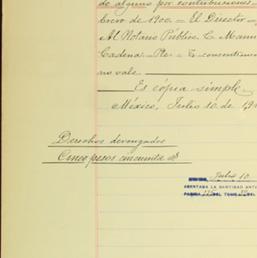 de alguno por contribuciones
Enero de 1900. = El Director =
Al Notario Público, C. Manu
Cadena. Pte = E consentimien
no vale.
Es cópia simple.
México, Julio 10 de 19
Derechos devengados
Cinco pesos cincuenta cs
Julio 10
ASENTADA LA CANTIDAD ANTE
DEL TOMO